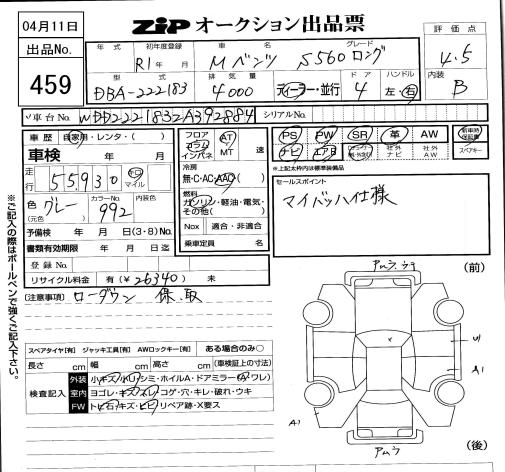 04月11日
ZIP オークション出品票
出品No.
459
年式 初年度登録 車名 グレード
R1年 月 Mベンツ S560 ロング
評価点
4.5
型式 排気量 ドア ハンドル
DBA-222183 4000 ディーラー・並行 4 左・右
内装
B
車台No. WDD2221832A392884 シリアルNo.
車歴 自家用・レンタ・( )
車検 年 月
走行 55930 キロ マイル
色(元色) グレー カラーNo. 992 内装色
予備検 年 月 日(3・8)No.
書類有効期限 年 月 日迄
登録No.
リサイクル料金 有(¥26340) 未
フロア コラム インパネ AT MT 速
冷房
無・C・AC・AAC
燃料
ガソリン・軽油・電気・その他( )
Nox 適合・非適合
乗車定員 名
PS PW SR 革 AW 新車時保証書
ナビ エアB 社外ナビ 社外AW スペアキー
※上記太枠内は標準装備品
セールスポイント
マイバッハ仕様
(注意事項) ローダウン 保、取
スペアタイヤ[有] ジャッキ工具[有] AWロックキー[有] ある場合のみ○
長さ cm 幅 cm 高さ cm (車検証上の寸法)
検査記入
外装 小キズ・小凹・シミ・ホイルA・ドアミラー(A・ワレ)
室内 ヨゴレ・キズ・スレ・コゲ・穴・キレ・破れ・ウキ
FW トビ石・キズ・ヒビ・リペア跡・X要ス
※ご記入の際はボールペンで強くご記入下さい。
(前)
A1
A1
(後)